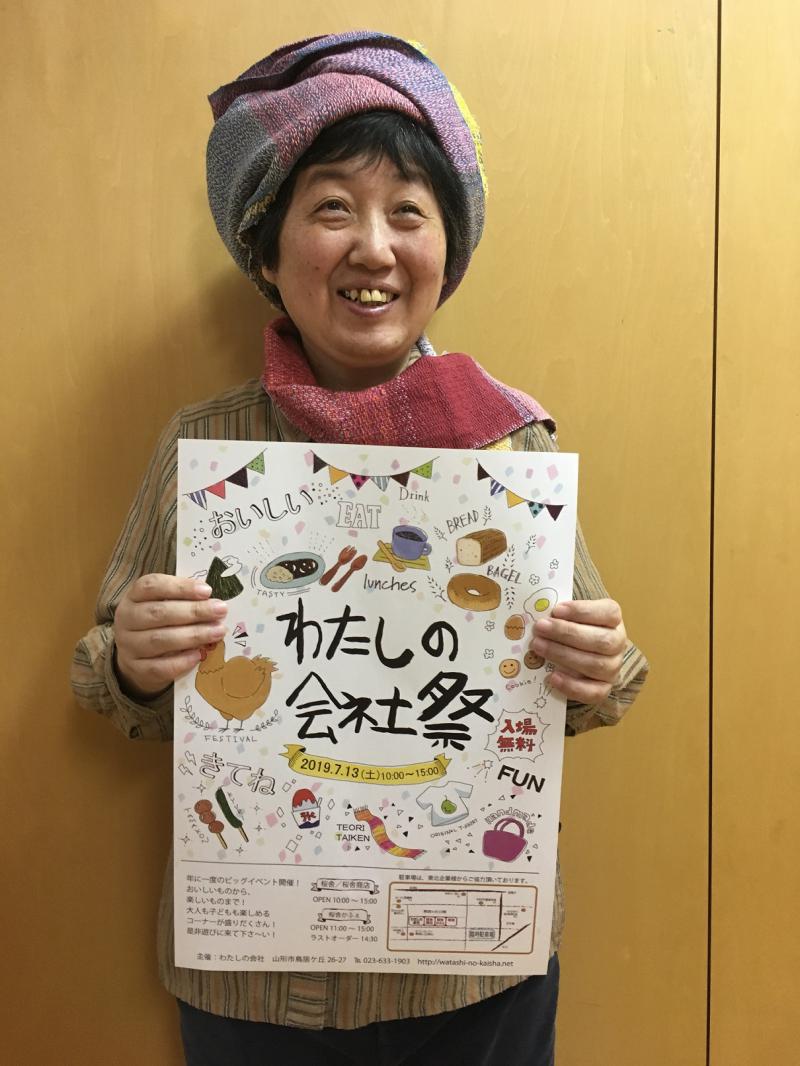 おいしい
EAT
Drink
BREAD
BAGEL
TASTY
lunches
わたしの
会社祭
cookie!
FESTIVAL
入場
無料
2019.7.13(土)10:00〜15:00
きてね
FUN
TEORI
TAIKEN
ORIGINAL T-SHIRT
handmade
年に一度のビッグイベント開催！
おいしいものから、
楽しいものまで！
大人も子どもも楽しめる
コーナーが盛りだくさん！
是非遊びに来て下さ〜い！
桜舎／桜舎商店
OPEN 10:00 〜 15:00
桜舎かふぇ
OPEN 11:00 〜 15:00
ラストオーダー 14:30
駐車場は、東北企業様からご協力頂いております。
臨時駐車場
主催：わたしの会社 山形市鳥居ケ丘 26-27 ℡ 023-633-1903 http://watashi-no-kaisha.net